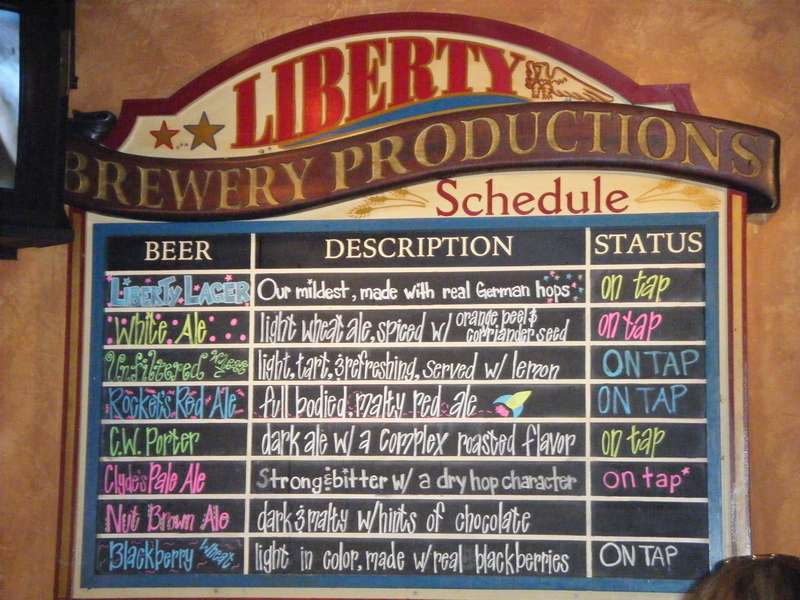 LIBERTY
BREWERY PRODUCTIONS
Schedule
BEER DESCRIPTION STATUS
LIBERTY LAGER Our mildest, made with real German hops on tap
White Ale light wheat ale, spiced w/ orange peel & corriander seed on tap
Unfiltered Wheat light, tart, & refreshing, served w/ lemon ON TAP
Rocket's Red Ale full bodied, malty red ale ON TAP
C.W. Porter dark ale w/ a complex roasted flavor on tap
Clyde's Pale Ale Strong & bitter w/ a dry hop character on tap*
Nut Brown Ale dark & malty w/ hints of chocolate
Blackberry Wheat light in color, made w/ real blackberries ON TAP